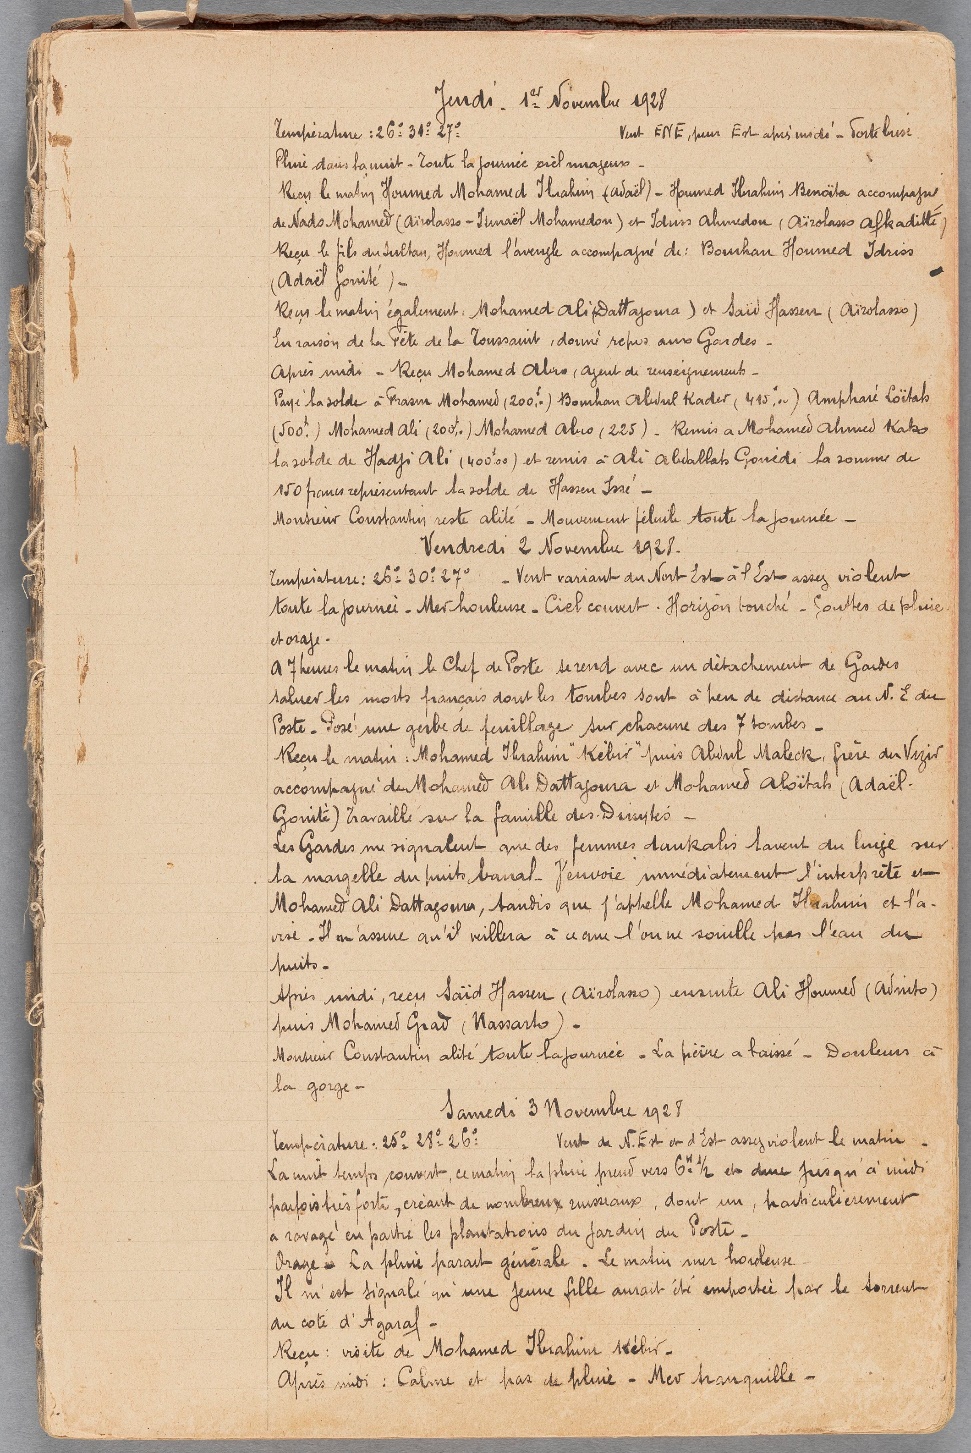 Jeudi - 1er Novembre 1928
Température : 26° 31° 27° Vent ENE, puis Est après midi - Forte brise
Pluie dans la nuit - Toute la journée ciel nuageux -
Reçu le matin Houmed Mohamed Ibrahim (Adaël) - Houmed Ibrahim Benoïta accompagné
de Nado Mohamed (Aïrolasso - Ismaël Mohamedou) et Idriss Ahmedou (Aïrolasso Afkaditté)
Reçu le fils du Sultan, Houmed l'aveugle accompagné de : Bourhan Houmed Idriss
(Adaël Gonité) -
Reçu le matin également : Mohamed Ali (Dattagoura) et Saïd Hassen (Aïrolasso)
En raison de la Fête de la Toussaint, donné repos aux Gardes -
Après midi - Reçu Mohamed Abro, agent de renseignements -
Payé la solde à Mohamed (200f.) Bourhan Abdul Kader (415f.) Ampharé Loïtah
(500f.) Mohamed Ali (200f.) Mohamed Abro (225) - Remis a Mohamed Ahmed Kako
la solde de Hadji Ali (400f00) et remis à Ali Abdallah Gouédi la somme de
150 francs représentant la solde de Hassen Issé -
Monsieur Constantin reste alité - Mouvement fébrile toute la journée -
Vendredi 2 Novembre 1928.
Température : 26° 30° 27° - Vent variant du Nort Est à l'Est assez violent
toute la journée - Mer houleuse - Ciel couvert - Horizon bouché - Gouttes de pluie
et orage -
A 7 heures le matin le Chef de Poste se rend avec un détachement de Gardes
saluer les morts français dont les tombes sont à peu de distance au N. E du
Poste - Posé une gerbe de feuillage sur chacune des 7 tombes -
Reçu le matin : Mohamed Ibrahim "Kébir" puis Abdul Maleck, frère du Vizir
accompagné de Mohamed Ali Dattagoura et Mohamed Aloïtah (Adaël -
Gonité) Travaillé sur la famille des
Les Gardes me signalent que des femmes dankalis lavent du linge sur
la margelle du puits banal - J'envoie immédiatement l'interprète et
Mohamed Ali Dattagoura, tandis que j'appelle Mohamed Ibrahim et l'a-
vise - Il m'assure qu'il veillera à ce que l'on ne souille pas l'eau du
puits -
Après midi, reçu Saïd Hassen (Aïrolasso) ensuite Ali Houmed (Adnito)
puis Mohamed Grad (Nassarto) -
Monsieur Constantin alité toute la journée - La fièvre a baissé - Douleurs à
la gorge -
Samedi 3 Novembre 1928
Température : 25° 28° 26° Vent de N. Est et d'Est assez violent le matin -
La nuit temps couvert, ce matin la pluie prend vers 6h 1/2 et dure jusqu'à midi
parfois très forte, créant de nombreux ruisseaux, dont un, particulièrement
a ravagé en partie les plantations du jardin du Poste -
Orage - La pluie parait générale - Le matin mer houleuse
Il m'est signalé qu'une jeune fille aurait été emportée par le torrent
du coté d'Agaraf -
Reçu : visite de Mohamed Ibrahim Kébir -
Après midi : Calme et pas de pluie - Mer tranquille -